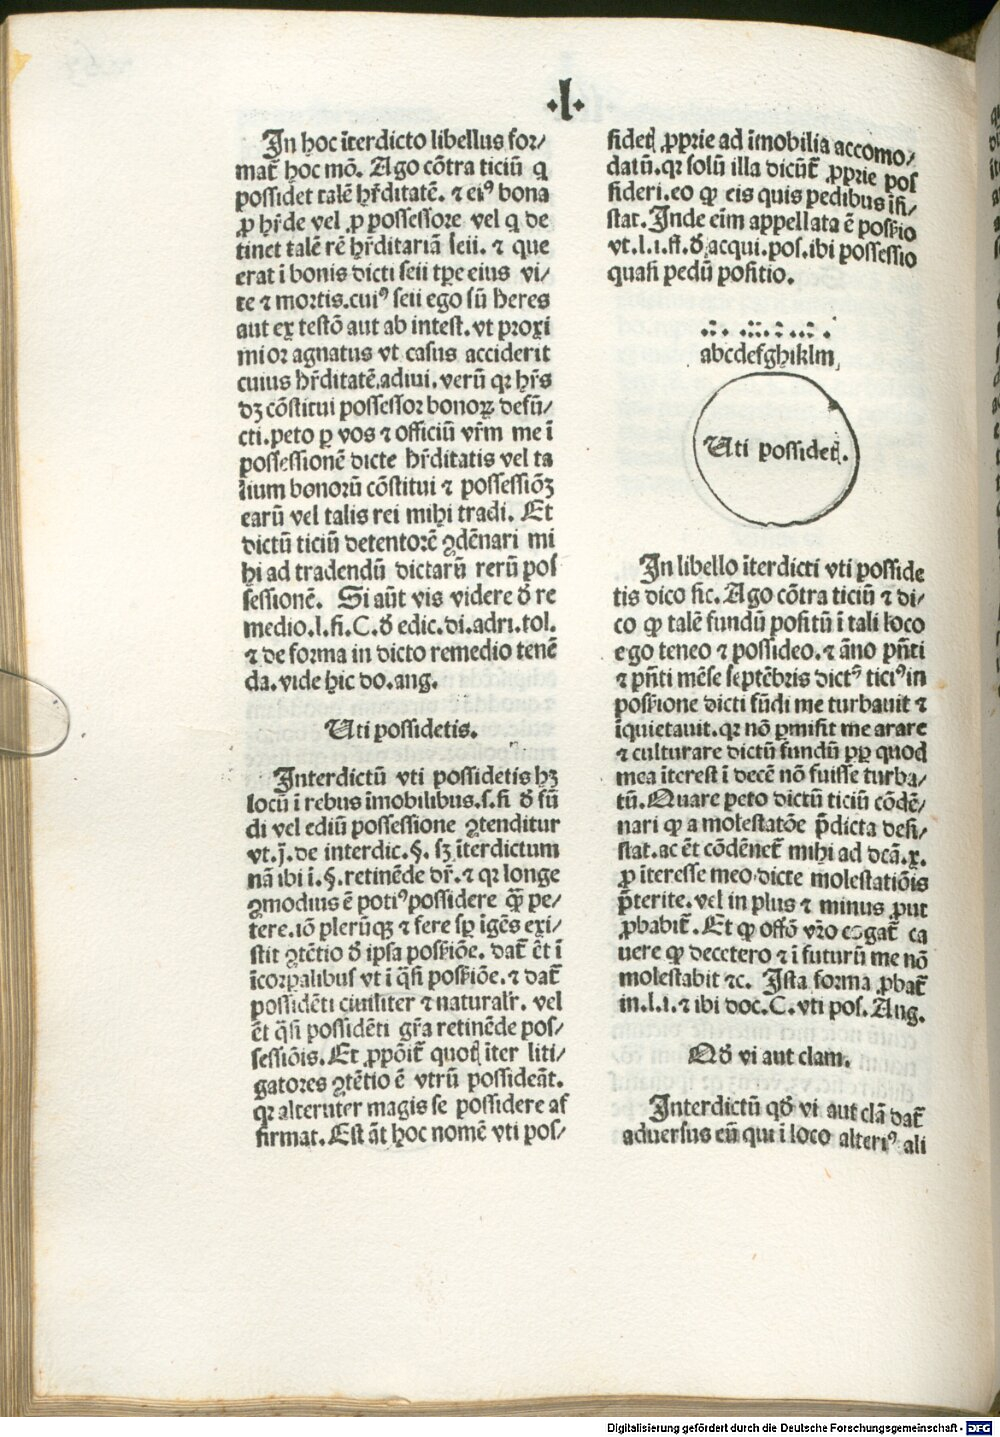 ·l·
In hoc īterdicto libellus for/
mat̄ hoc mō. Ago cōtra ticiū q
possidet talē hr̄ditatē. ⁊ eiꝰ bona
ꝓ hr̄de vel ꝓ possessore vel q de
tinet talē rē hr̄ditariā seii. ⁊ que
erat ī bonis dicti seii tꝑe eius vi/
te ⁊ mortis.cuiꝰ seii ego sū heres
aut ex testō aut ab intest. vt proxi
mior agnatus vt casus acciderit
cuius hr̄ditatē.adiui. verū qꝛ hr̄s
dꝫ cōstitui possessor bonoꝝ defū/
cti.peto ꝑ vos ⁊ officiū vr̄m me ī
possessionē dicte hr̄ditatis vel ta
lium bonorū cōstitui ⁊ possessiōꝫ
earū vel talis rei mihi tradi. Et
dictū ticiū detentorē ꝯdēnari mi
hi ad tradendū dictarū rerū pos
sessionē. Si aūt vis videre ð re
medio.l.fi.C.ð edic.di.adri.tol.
⁊ de forma in dicto remedio tenē
da. vide hic do. ang.
Uti possidetis.
Interdictū vti possidetis hꝫ
locū ī rebus īmobilibus.s.si ð fū
di vel ediū possessione ꝯtenditur
vt.j̄.de interdic.§. sꝫ īterdictum
nā ibi ī.§.retinēde dr̄. ⁊ qꝛ longe
ꝯmodius ē potiꝰ possidere q̄ꝫ pe/
tere.iō plerūqꝫ ⁊ fere sꝑ īgēs exi/
stit ꝯtētio ð ipsa possīiōe. dat̄ ēt ī
īcorꝑalibus vt ī q̄si possīiōe. ⁊ dat̄
possidēti ciuiliter ⁊ naturalr̄. vel
ēt q̄si possidēti gr̄a retinēde pos/
sessiōis. Et ꝓpōit̄ quotꝭ īter liti/
gatores ꝯtētio ē vtrū possideāt.
qꝛ alteruter magis se possidere af
firmat. Est āt hoc nomē vti pos/
sidetꝭ ꝓprie ad īmobilia accomo/
datū.qꝛ solū illa dicūt̄ ꝓprie pos
sideri.eo ꝙ eis quis pedibus īsi/
stat. Inde eīm appellata ē possīio
vt.l.i.ff.ð acqui.pos.ibi possessio
quasi pedū positio.
abcdefghiklm
Uti possidetꝭ.
In libello īterdicti vti posside
tis dico sic. Ago cōtra ticiū ⁊ di/
co ꝙ talē fundū positū ī tali loco
ego teneo ⁊ possideo. ⁊ āno pn̄ti
⁊ pn̄ti mēse septēbris dictꝰ ticiꝰ in
possīione dicti fūdi me turbauit ⁊
īquietauit. qꝛ nō ꝑmisit me arare
⁊ culturare dictū fundū ꝓꝑ quod
mea īterest ī decē nō fuisse turba/
tū. Quare peto dictū ticiū cōdē/
nari ꝙ a molestatōe p̄dicta desi/
stat. ac ēt cōdēnet̄ mihi ad dcā.x.
ꝓ īteresse meo dicte molestatiōis
p̄terite. vel in plus ⁊ minus ꝓut
ꝓbabit̄. Et ꝙ offō vr̄o cogat̄ ca
uere ꝙ decetero ⁊ ī futurū me nō
molestabit ⁊c. Ista forma ꝓbat̄
in.l.i. ⁊ ibi doc.C.vti pos. Ang.
Qð vi aut clam.
Interdictū qð vi aut clā dat̄
aduersus eū qui ī loco alteriꝰ ali
Digitalisierung gefördert durch die Deutsche Forschungsgemeinschaft - DFG